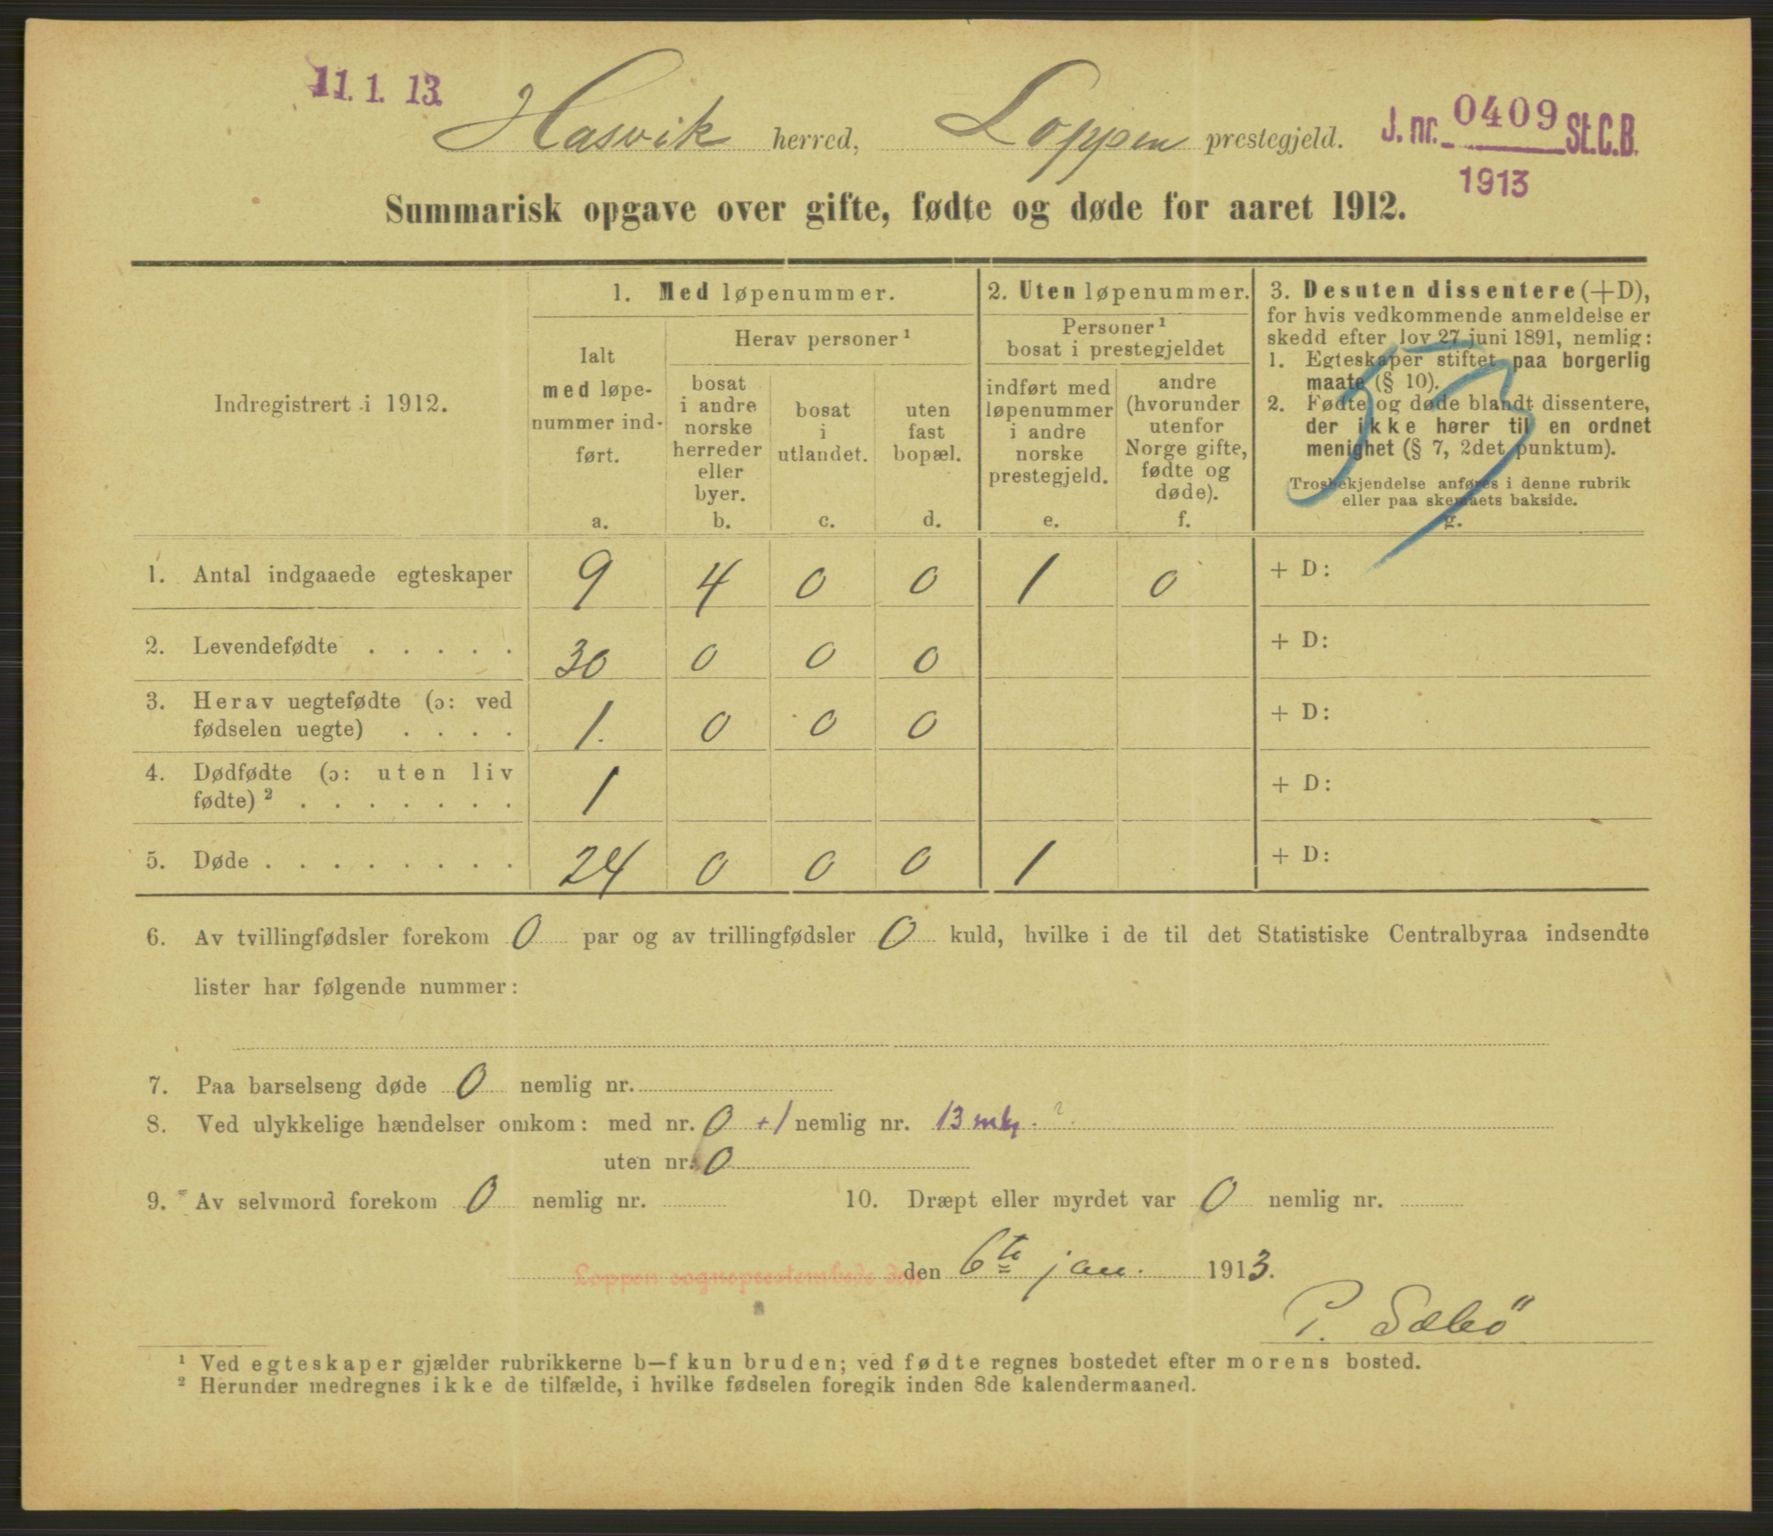 11. 1. 13.
Hasvik herred, Loppen prestegjeld.
J. nr. 0409 St.C.B.
1913
Summarisk opgave over gifte, fødte og døde for aaret 1912.
Indregistrert i 1912.
1. Med løpenummer.
Ialt
med løpe-
nummer ind-
ført.
a.
Herav personer ¹
bosat
i andre
norske
herreder
eller
byer.
b.
bosat
i
utlandet.
c.
uten
fast
bopæl.
d.
2. Uten løpenummer.
Personer ¹
bosat i prestegjeldet
indført med
løpenummer
i andre
norske
prestegjeld.
e.
andre
(hvorunder
utenfor
Norge gifte,
fødte og
døde).
f.
3. Desuten dissentere (+D),
for hvis vedkommende anmeldelse er
skedd efter lov 27 juni 1891, nemlig:
1. Egteskaper stiftet paa borgerlig
maate (§ 10).
2. Fødte og døde blandt dissentere,
der ikke hører til en ordnet
menighet (§ 7, 2det punktum).
Trosbekjendelse anføres i denne rubrik
eller paa skemaets bakside.
g.
1. Antal indgaaede egteskaper 9 4 0 0 1 0 + D:
2. Levendefødte . . . . . 30 0 0 0 + D:
3. Herav uegtefødte (ɔ: ved
fødselen uegte) . . . . 1. 0 0 0 + D:
4. Dødfødte (ɔ: uten liv
fødte) ² . . . . . . . 1 + D:
5. Døde . . . . . . . . 24 0 0 0 1 + D:
6. Av tvillingfødsler forekom 0 par og av trillingfødsler 0 kuld, hvilke i de til det Statistiske Centralbyraa indsendte
lister har følgende nummer:
7. Paa barselseng døde 0 nemlig nr.
8. Ved ulykkelige hændelser omkom: med nr. 0 +1 nemlig nr. 13 mk. ?
uten nr. 0
9. Av selvmord forekom 0 nemlig nr.
10. Dræpt eller myrdet var 0 nemlig nr.
Loppen sogneprestembede den 6te jan. 1913.
P. Sæbö
¹ Ved egteskaper gjælder rubrikkerne b—f kun bruden; ved fødte regnes bostedet efter morens bosted.
² Herunder medregnes ikke de tilfælde, i hvilke fødselen foregik inden 8de kalendermaaned.